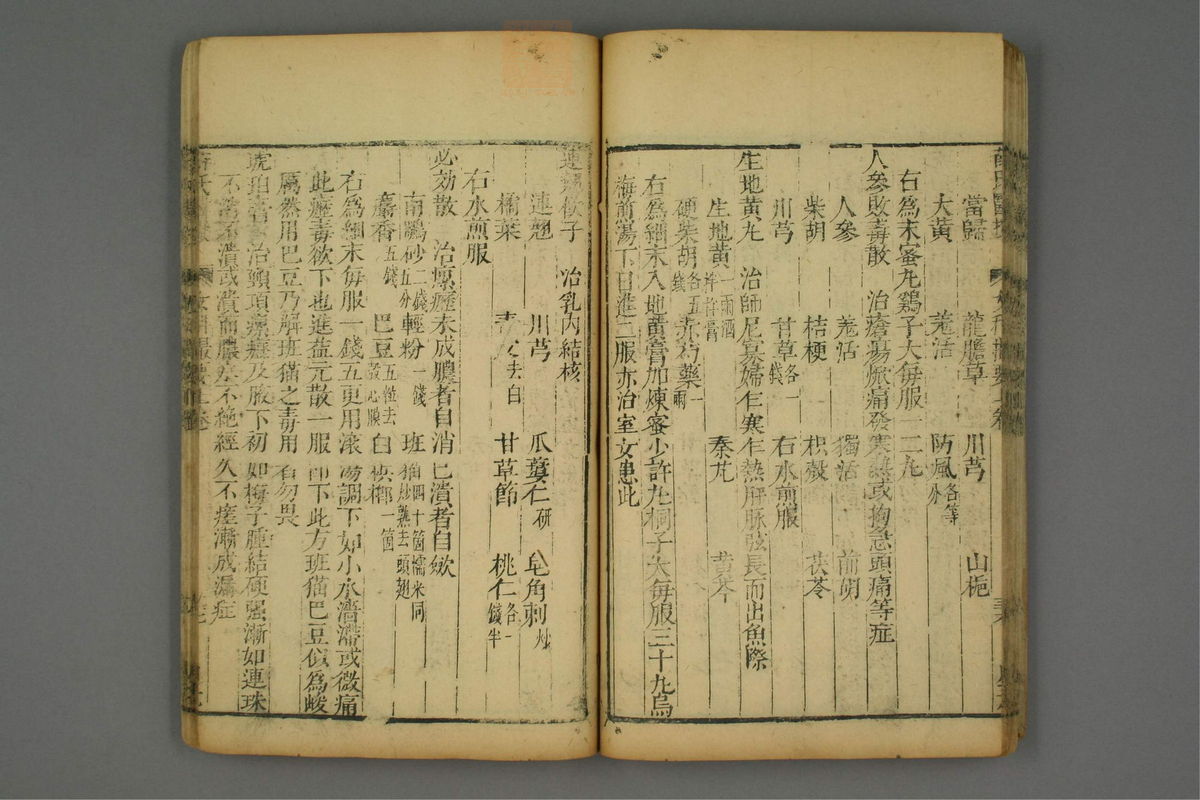 當歸 龍膽草 川芎 山梔
大黃 羗活 防風各等分
右為末蜜丸鷄子大每服一二丸
人參敗毒散 治瘡瘍焮痛發寒熱或拘急頭痛等症
人參 羗活 獨活 前胡
柴胡 桔梗 枳殼 茯苓
川芎 甘草各一錢 右水煎服
生地黃丸 治師尼寡婦乍寒乍熱肝脉弦長而出魚際
生地黃一兩酒拌杵膏 秦艽 黃芩
硬柴胡各五錢 赤芍藥一兩
右為細末入地黃膏加煉蜜少許丸桐子大每服三十丸烏
梅煎湯下日進二服亦治室女患此
連翹飲子 治乳內結核
連翹 川芎 瓜蔞仁研 皂角刺炒
橘葉 青皮去白 甘草節 桃仁各一錢半
右水煎服
必効散 治瘰癧未成膿者自消已潰者自斂
南鵬砂二錢五分 輕粉一錢 班猫四十箇糯米同炒熟去頭翅
麝香五錢 巴豆五粒去殻心膜 白梹榔一箇
右為細末每服一錢五更用滚湯調下如小水濇滯或微痛
此瘰毒欲下也進益元散一服卽下此方班猫巴豆似為峻
厲然用巴豆乃解班猫之毒用者勿畏
琥珀膏 治頸項瘰癧及腋下初如梅子腫結硬强漸如連珠
不消不潰或潰而膿水不絶經久不瘥漸成漏症